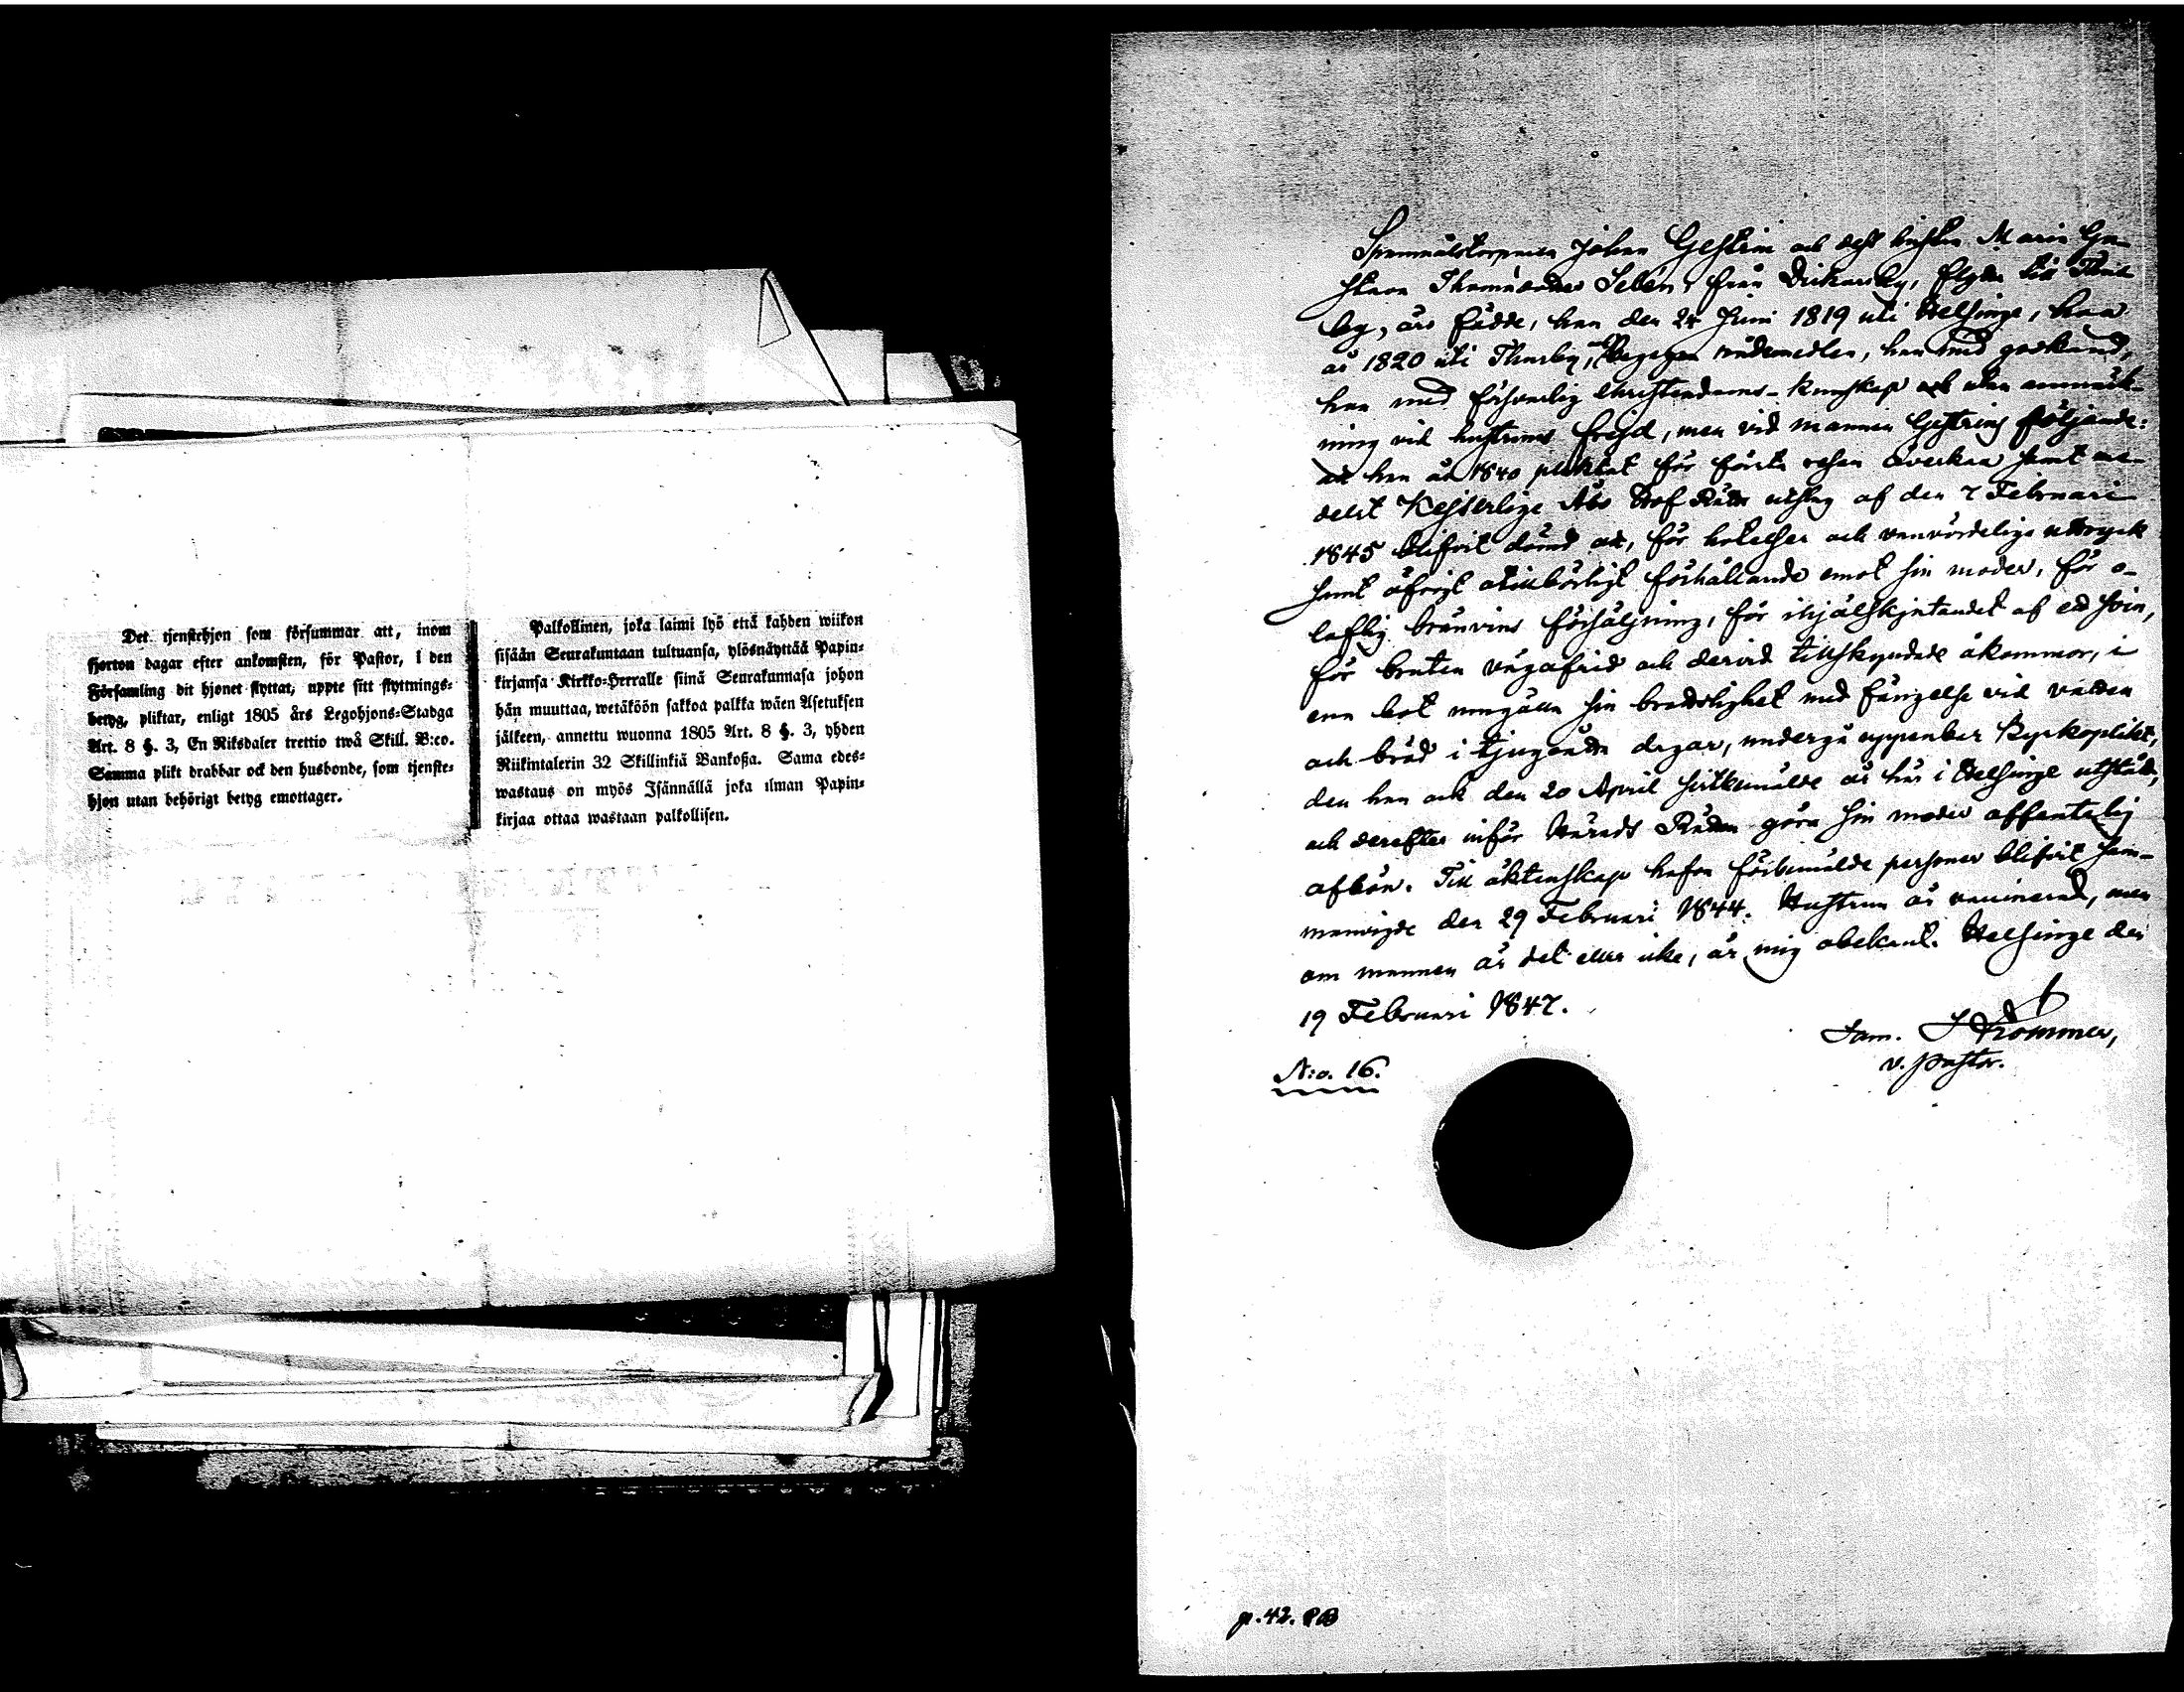 Det tjenstehjon som försummar att, inom
fjorton dagar efter ankomsten, för Pastor, i den
Församling dit hjonet flyttat, uppte sitt flyttnings-
betyg, pliktar, enligt 1805 års Legohjons-Stadga
Art. 8 §. 3, En Riksdaler trettio twå Skill. B:co.
Samma plikt drabbar ock den husbonde, som tjenste-
hjon utan behörigt betyg emottager.
Palkollinen, joka laimi lyö että kahden wiikon
sisään Seurakuntaan tultuansa, ylösnäyttää Papin-
kirjansa Kirkko-Herralle siinä Seurakunnasa johon
hän muuttaa, wetäköön sakkoa palkka wäen Asetuksen
jälkeen, annettu wuonna 1805 Art. 8 §. 3, yhden
Riikintalerin 32 Skillinkiä Bankoßa. Sama edes-
wastaus on myös Isännällä joka ilman Papin-
kirjaa ottaa wastaan palkollisen.
Johan Gestrin och dess hustru Maria Gu-
stava från Dickursby, flytta till
by, äro födde, han den 24 Juni 1819 uti Helsinge, hon
år 1820 uti Thusby, begagna nådemedlen, han med godkänd,
hon med försvarlig Christendoms-kunskap och utan anmärk-
ning vid hustruns frejd, men vid mannen Gestrins följande:
att han år 1840 pliktat för första resan åverkan samt me-
delst Kejserlige Åbo Hof Rätts utslag af den 7 Februari
1845 blifvit dömd att, för hotelser och vanvördeliga uttryck
samt öfrigt otillbörligt förhållande emot sin moder, för o-
laflig bränvins försäljning, för ihjälskjutandet af ed svin,
för bruten vägafrid och dervid tillskyndade åkommor, i
ena bot umgälla sin brottslighet med fängelse vid vatten
och bröd i tjuguåtta dagar, undergå uppenbar Kyrkoplikt,
den han ock den 20 April sistbemälde år här i Helsinge utstått,
och derefter inför Härads Rätten göra sin moder offentelig
afbön. Till äktenskap hafva förbemälde personer blifvit sam-
manvigde den 29 Februari 1844. Hustrun är vaccinerad, men
om mannen är det eller icke, är mig obekant. Helsinge den
19 Februari 1847.
Sam. Strömmer,
v. pastor.
N:o. 16.
p. 42. PB